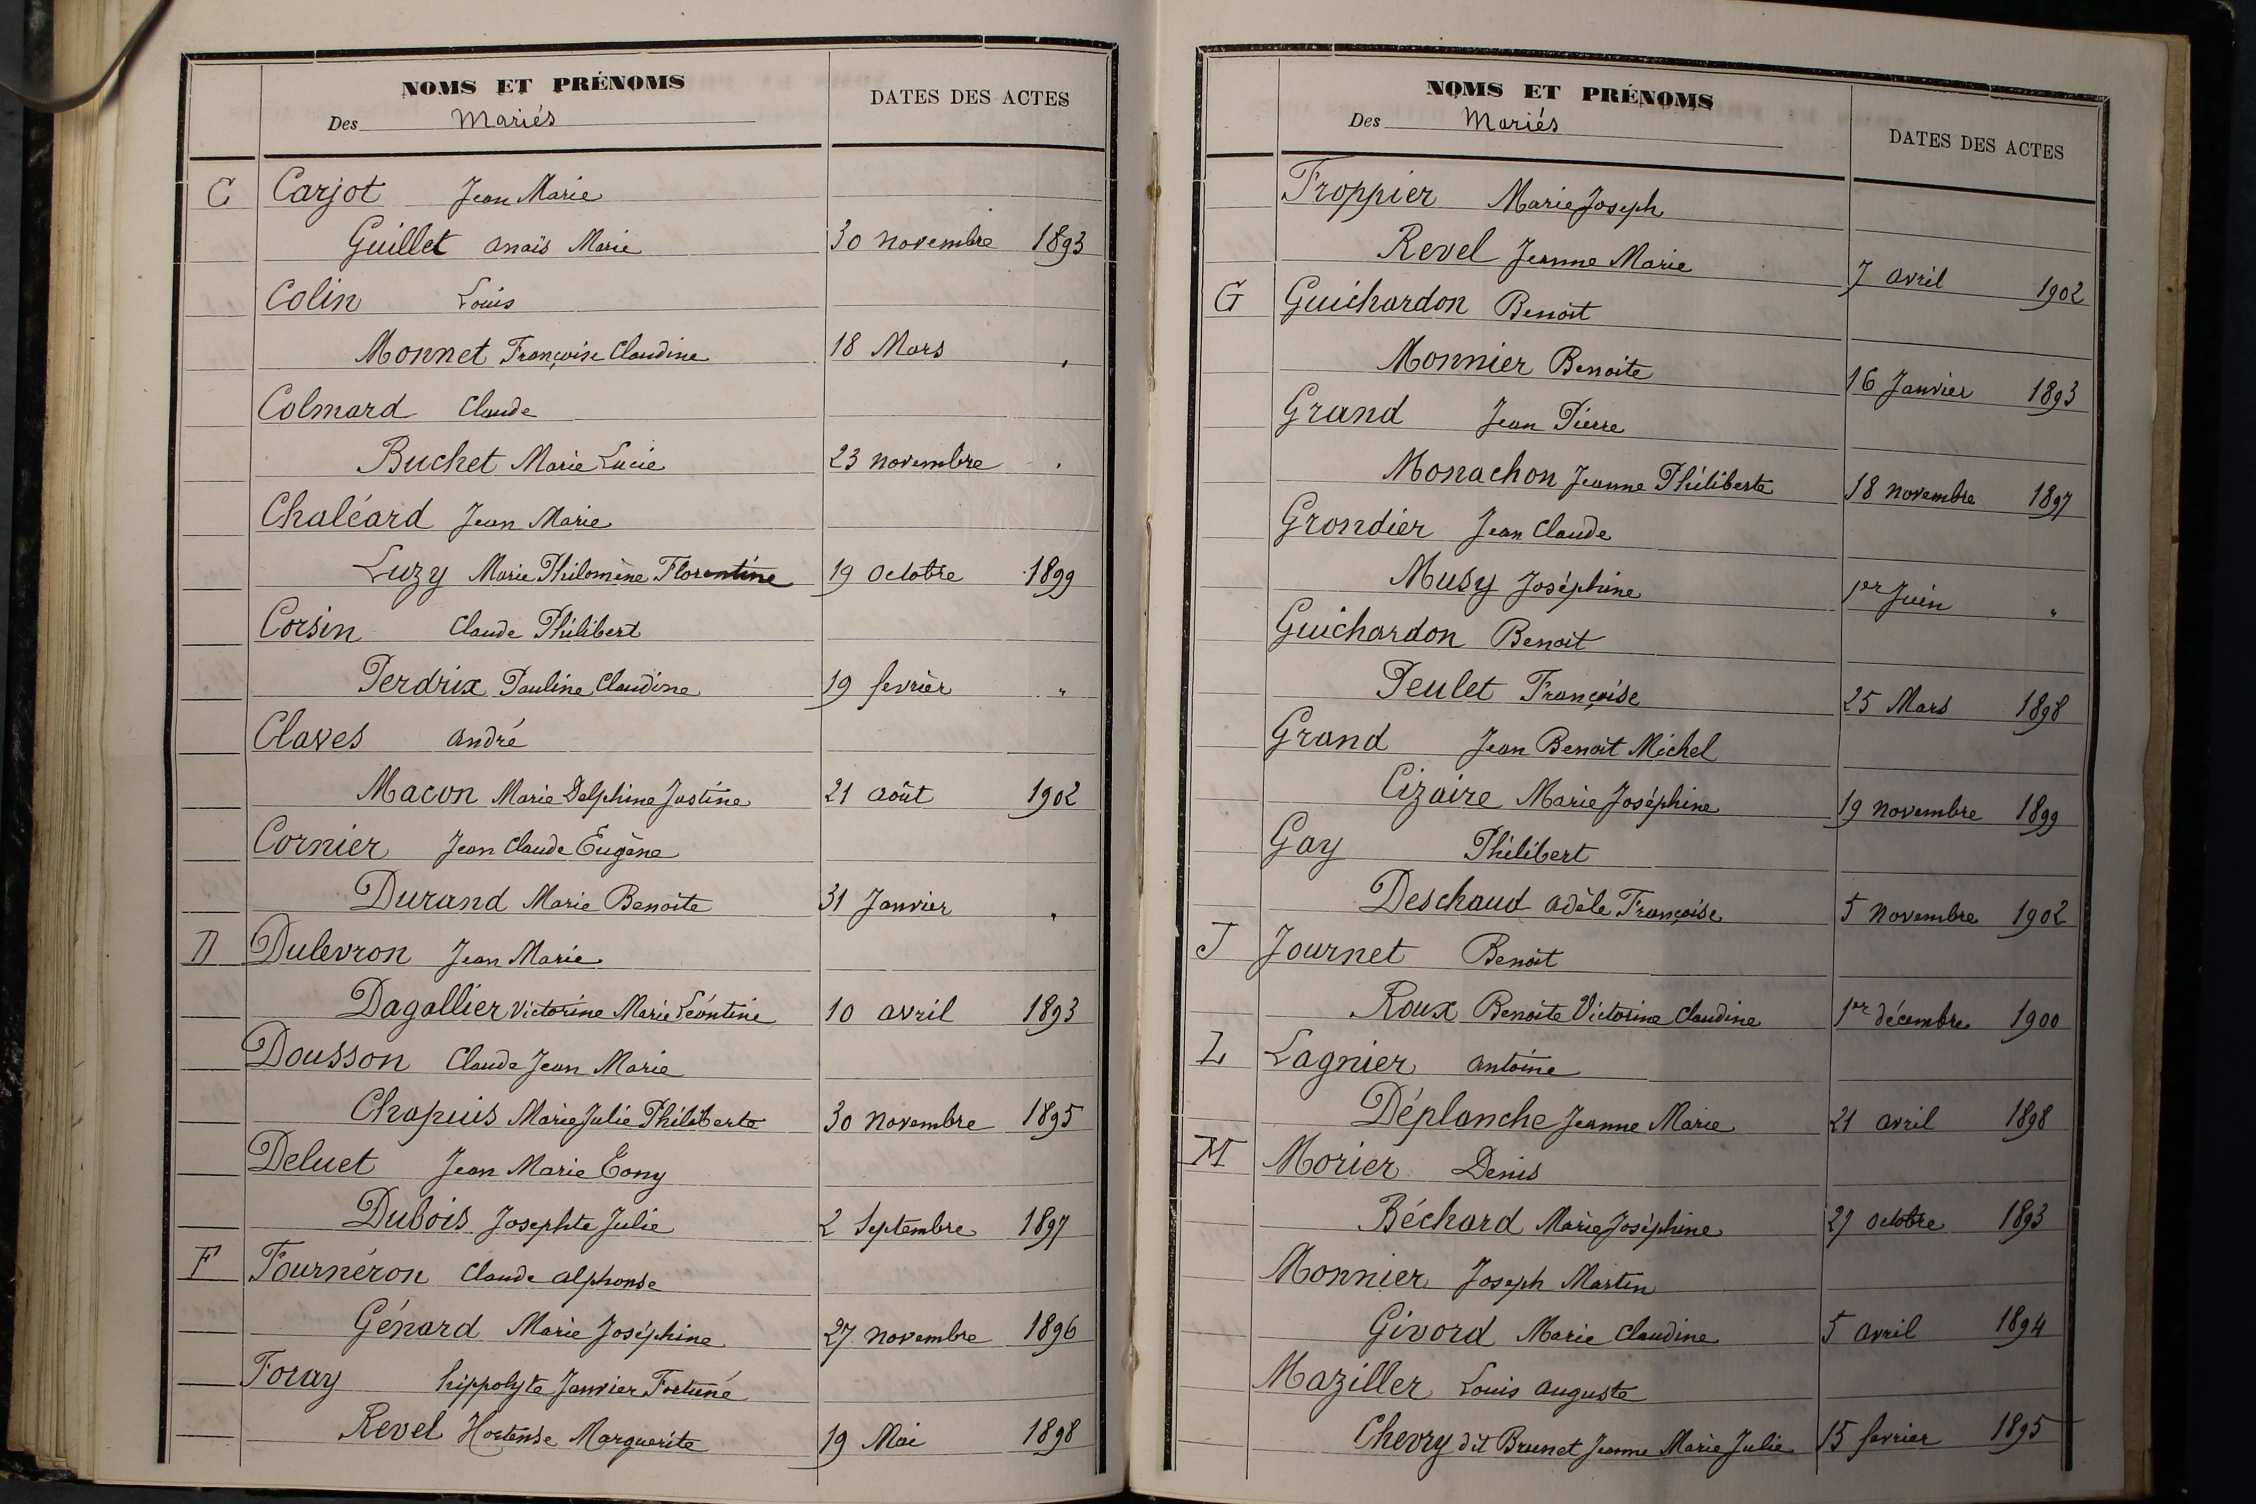 NOMS ET PRÉNOMS
DATES DES ACTES
Des Mariés
C Carjot Jean Marie
Guillet Anaïs Marie 30 novembre 1893
Colin Louis
Monnet Françoise Claudine 18 Mars "
Colmard Claude
Buchet Marie Lucie 23 novembre "
Chaléard Jean Marie
Luzy Marie Philomène Florentine 19 Octobre 1899
Corsin Claude Philibert
Perdrix Pauline Claudine 19 fevrièr "
Claves André
Macon Marie Delphine Justine 21 août 1902
Cornier Jean Claude Eugène
Durand Marie Benoîte 31 Janvier "
D Dulevron Jean Marie
Dagallier Victorine Marie Léontine 10 avril 1893
Dousson Claude Jean Marie
Chapuis Marie Julie Philiberte 30 Novembre 1895
Deluet Jean Marie Tony
Dubois Josephte Julie 2 Septembre 1897
F Fournéron Claude Alphonse
Génard Marie Joséphine 27 novembre 1896
Foray hippolyte Janvier Fortuné
Revel Hortense Marguerite 19 Mai 1898
NOMS ET PRÉNOMS
DATES DES ACTES
Des Mariés
Froppier Marie Joseph
Revel Jeanne Marie 7 avril 1902
G Guichardon Benoît
Monnier Benoîte 16 Janvier 1893
Grand Jean Pierre
Monachon Jeanne Philiberte 18 novembre 1897
Grondier Jean Claude
Musy Joséphine 1er Juin "
Guichardon Benoit
Peulet Françoise 25 Mars 1898
Grand Jean Benoit Michel
Cizaire Marie Joséphine 19 novembre 1899
Gay Philibert
Deschaud Adèle Françoise 5 Novembre 1902
J Journet Benoit
Roux Benoîte Victorine Claudine 1er décembre 1900
L Lagnier Antoine
Déplanche Jeanne Marie 21 avril 1898
M Morier Denis
Béchard Marie Joséphine 27 octobre 1893
Monnier Joseph Martin
Givord Marie Claudine 5 avril 1894
Maziller Louis Auguste
Chevry dit Brunet Jeanne Marie Julie 15 favrier 1895